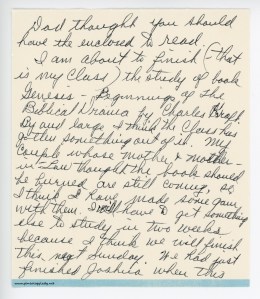 Dad thought you should
have the enclosed to read.
I am about to finish (that
is my class) the study of book
Genesis - Beginnings of the
Biblical drama by Charles Kraft.
By and large, I think the class has
gotten something out of it. My
couple whose mother & mother-
in-law thought the book should
be burned are still coming, so
I think I have made some gain
with them. I will have to get something
else to study in two weeks
because I think we will finish
this next Sunday. We had just
finished Joshua when this